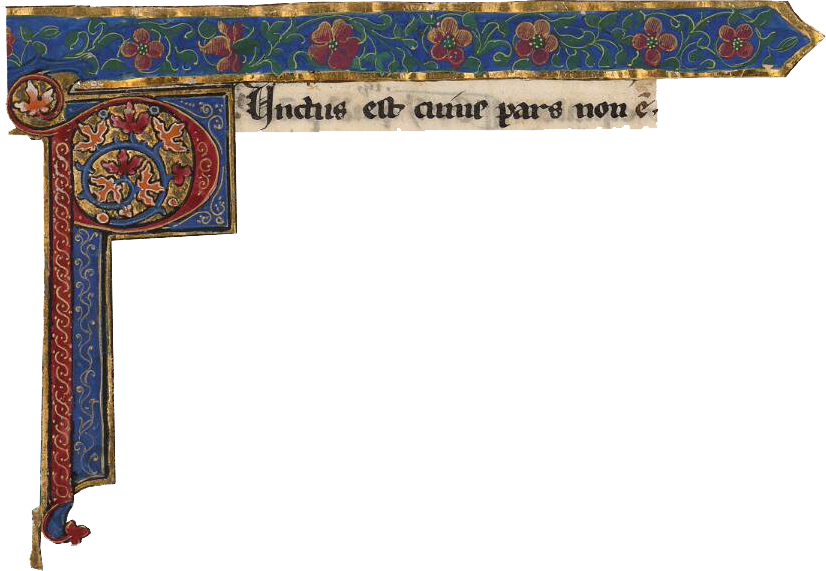 PUnctus est cuius pars non ē.